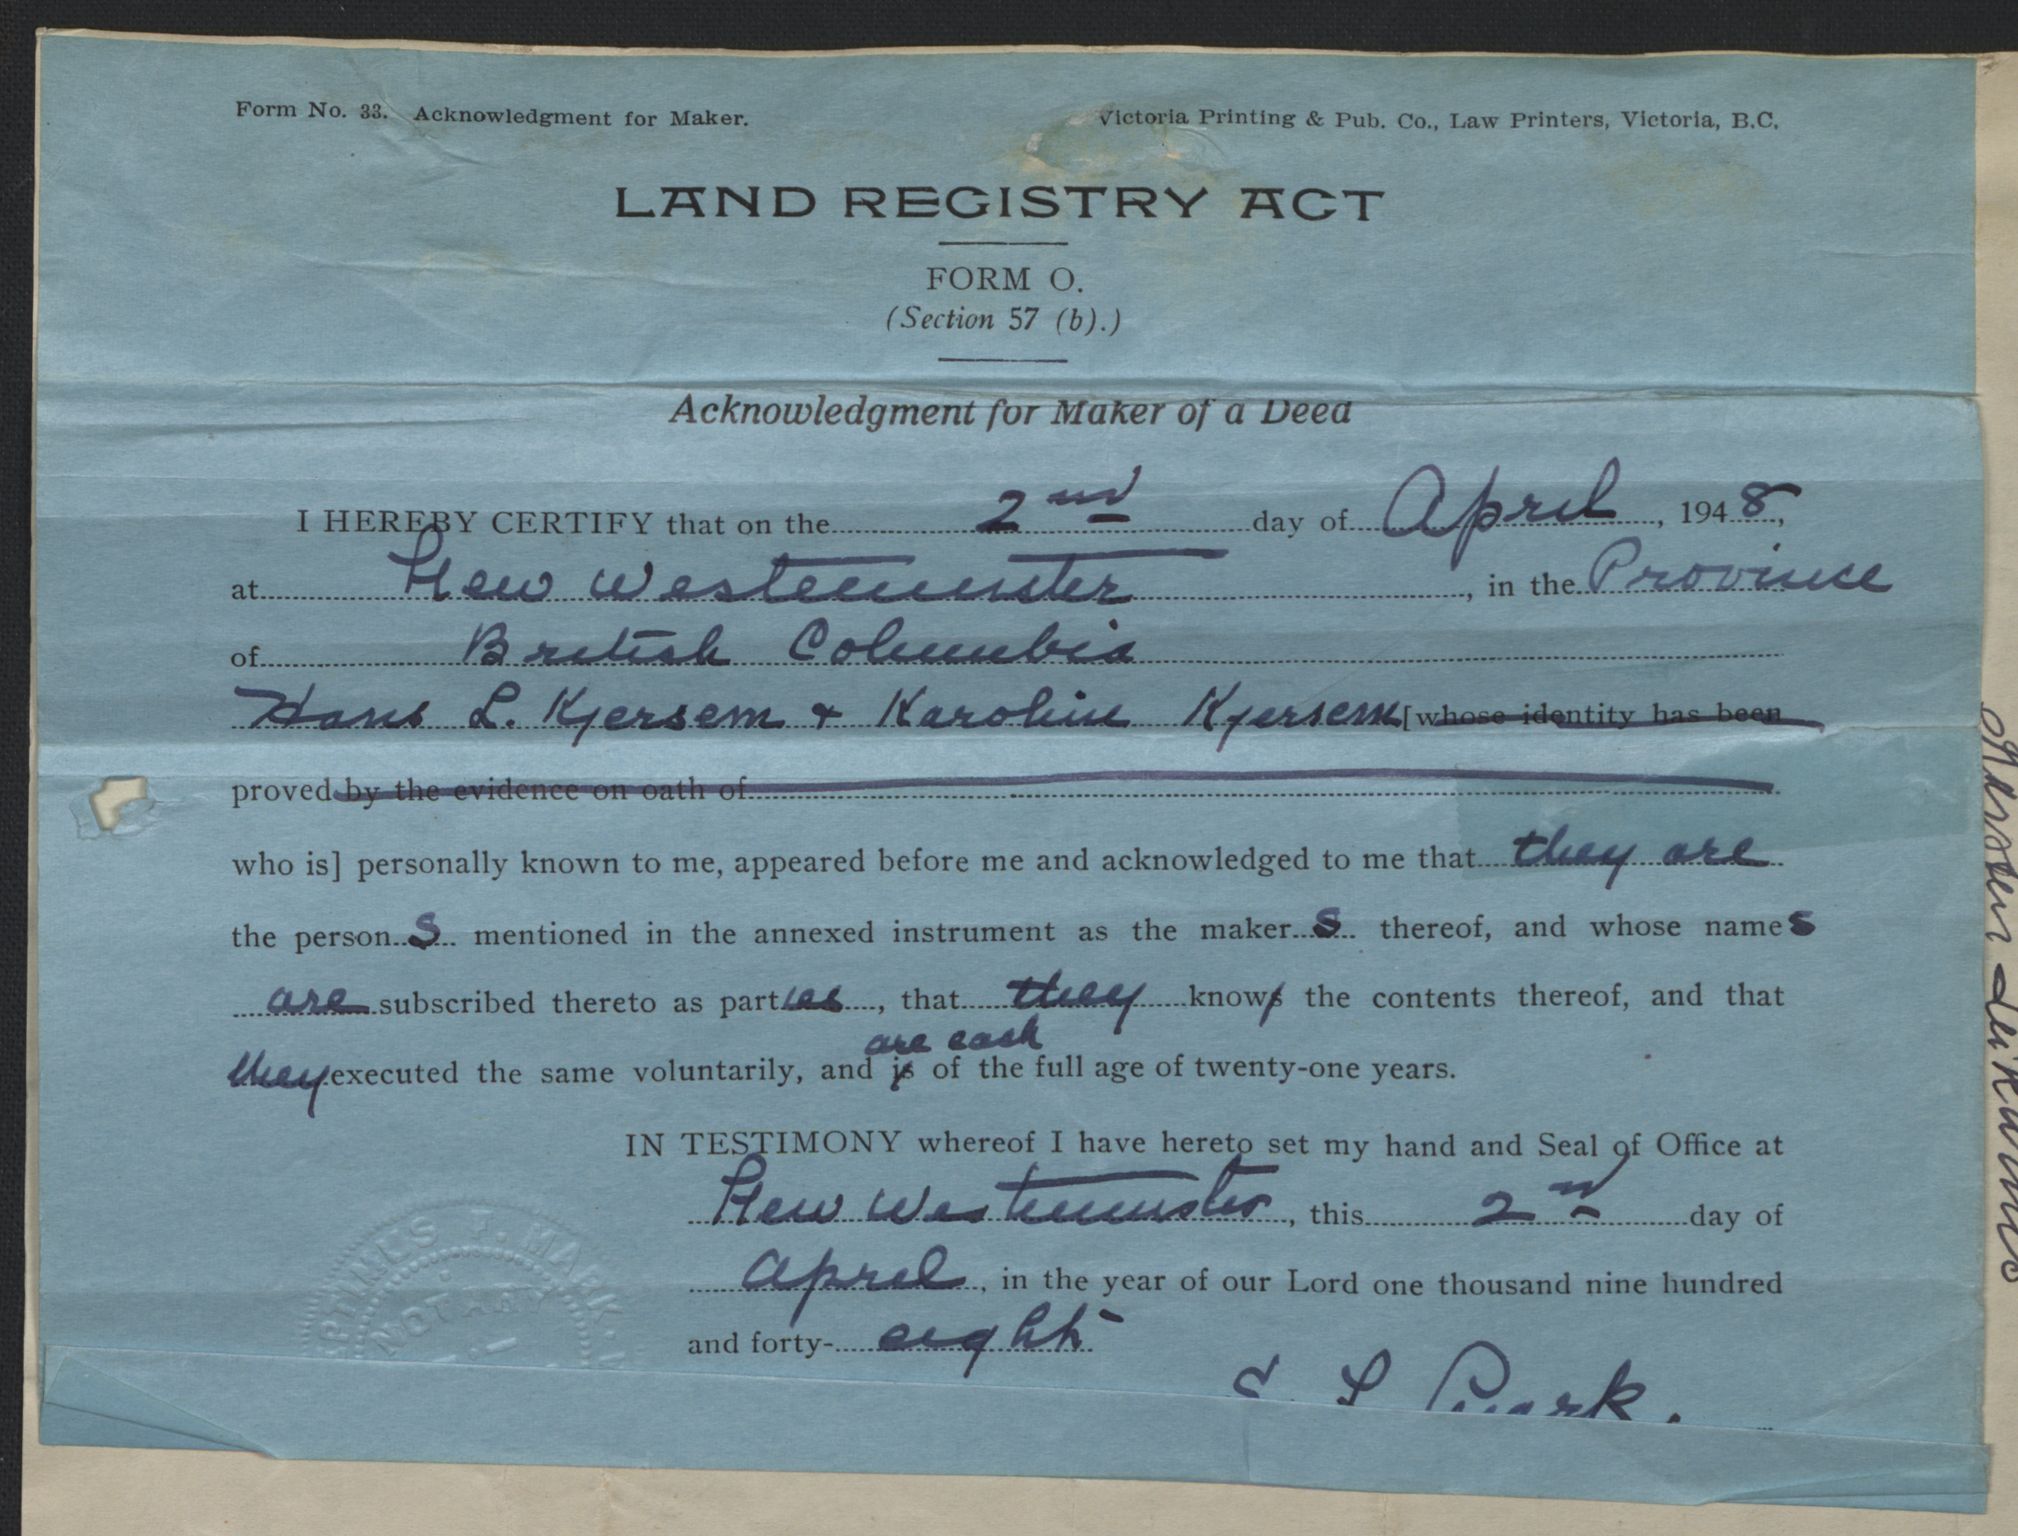 Form No. 33. Acknowledgment for Maker. Victoria Printing & Pub. Co., Law Printers, Victoria, B.C.
LAND REGISTRY ACT
FORM O.
(Section 57 (b).)
Acknowledgment for Maker of a Deed
I HEREBY CERTIFY that on the 2nd day of April, 1948,
at New Westminster, in the Province
of British Columbia
Hans L. Kjersem & Karoline Kjersem [whose identity has been
proved by the evidence on oath of
who is] personally known to me, appeared before me and acknowledged to me that they are
the persons mentioned in the annexed instrument as the makers thereof, and whose names
are subscribed thereto as parties, that they knows the contents thereof, and that
are each
they executed the same voluntarily, and is of the full age of twenty-one years.
IN TESTIMONY whereof I have hereto set my hand and Seal of Office at
New Westminster, this 2nd day of
April, in the year of our Lord one thousand nine hundred
and forty-eight
MARK
NOTARY